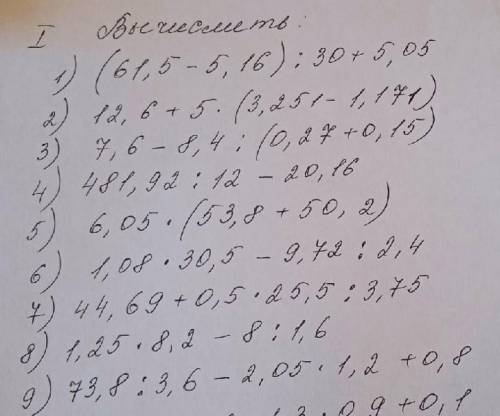 I Вычислить:
1) (61,5 - 5,16) : 30 + 5,05
2) 12,6 + 5 · (3,251 - 1,171)
3) 7,6 - 8,4 : (0,27 + 0,15)
4) 481,92 : 12 - 20,16
5) 6,05 · (53,8 + 50,2)
6) 1,08 · 30,5 - 9,72 : 2,4
7) 44,69 + 0,5 · 25,5 : 3,75
8) 1,25 · 8,2 - 8 : 1,6
9) 73,8 : 3,6 - 2,05 · 1,2 + 0,8
0,9 + 0,1